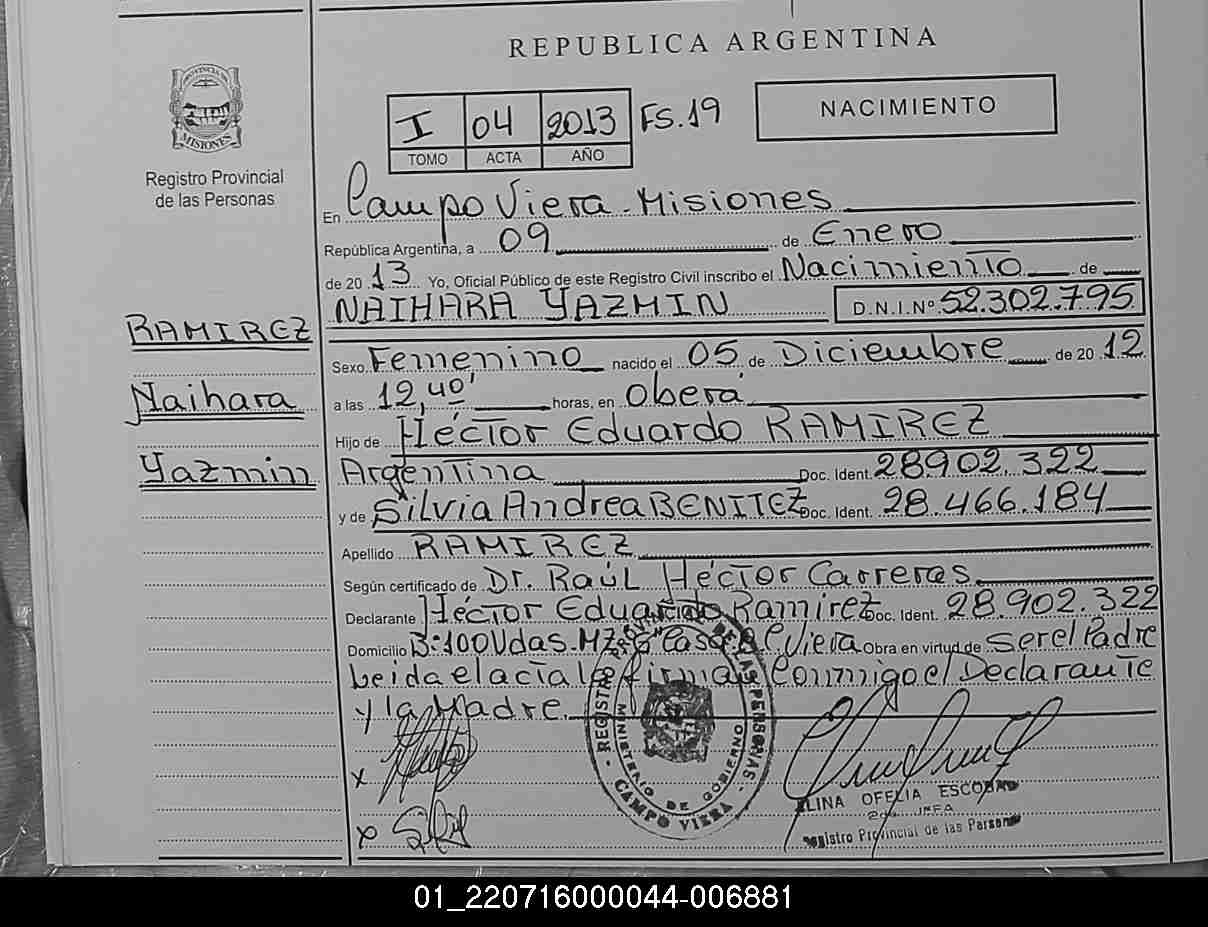 REPUBLICA ARGENTINA
PROVINCIA DE MISIONES
Registro Provincial
de las Personas
I 04 2013 FS.19
TOMO ACTA AÑO
NACIMIENTO
En Campo Viera - Misiones
República Argentina, a 09 de Enero
de 2013 Yo, Oficial Público de este Registro Civil inscribo el Nacimiento de
NAIHARA YAZMIN D.N.I.Nº 52.302.795
RAMIREZ
Naihara
Yazmin
Sexo Femenino nacido el 05 de Diciembre de 2012
a las 12,40' horas, en Oberá
Hijo de Héctor Eduardo RAMIREZ
Argentina Doc. Ident. 28902.322
y de Silvia Andrea BENITEZ Doc. Ident. 28.466.184
Apellido RAMIREZ
Según certificado de Dr. Raúl Héctor Carreras
Declarante Héctor Eduardo Ramirez Doc. Ident. 28.902.322
Domicilio B:100Vdas. MZ Casa C. Viera Obra en virtud de Ser el Padre
Leida el acta la firman Conmigo el Declarante
y la Madre
REGISTRO PROVINCIAL DE LAS PERSONAS
MINISTERIO DE GOBIERNO
CAMPO VIERA
X
X
ELINA OFELIA ESCOBAR
2da JEFA
Registro Provincial de las Personas
01_220716000044-006881